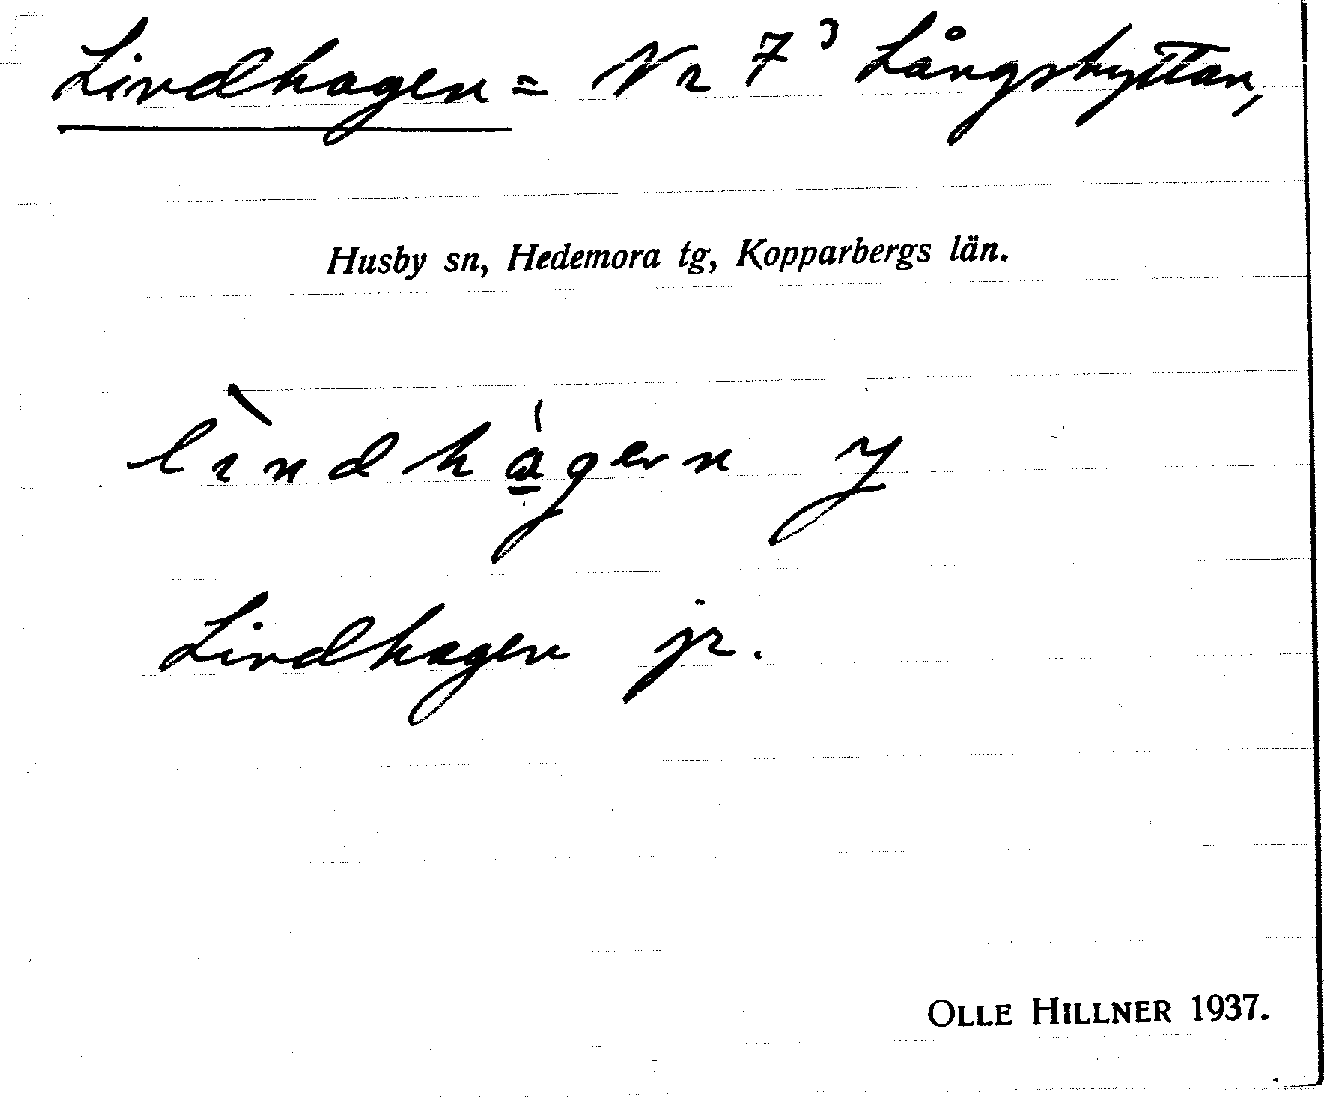 Lindhagen = Nr 7³ Långshyttan,
Husby sn, Hedemora tg, Kopparbergs län.
lìndhágen y
Lindhagen jr.
OLLE HILLNER 1937.